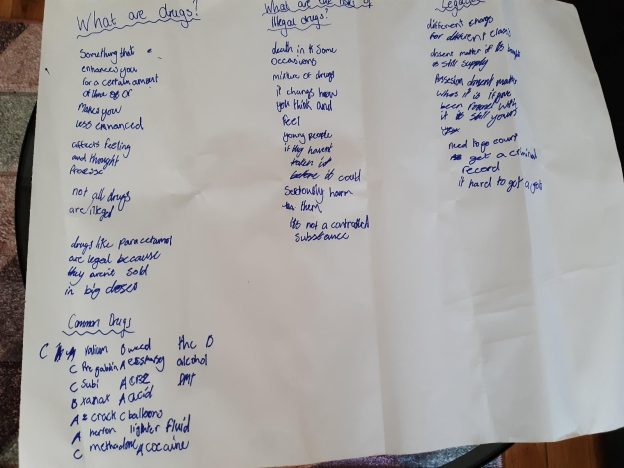 What are drugs?
Something that
enhances you
for a certain amount
of time or
Makes you
less enhanced
affects feeling
and thought
Process
not all drugs
are illegal
drugs like paracetamol
are legal because
they arent sold
in big doses
Common Drugs
C A valium B weed thc B
C Pregabalin A alcohol
C Subi A DMT
B xanax A acid
A crack C balloons
A lighter fluid
C methadone A cocaine
What are the of
Illegal drugs?
death in some
occasions
mixture of drugs
it changs how
you think and
feel
young people
if they havent
taken it
before it could
Seriously harm
them
its not a controlled
substance
different chargs
for different class
dosent matter if its bought
its still supply
dosent matter
whos it is if
been with
it is still yours
need to go court
get a criminal
record
it hard to get a job